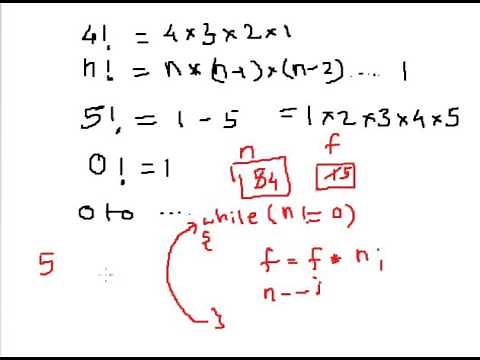 4! = 4*3*2*1
n! = n*(n-1)*(n-2).... 1
5! = 1 - 5 = 1*2*3*4*5
0! = 1
n f
4 5
0 to ....
while (n!=0)
{
5
f = f * n;
n--;
}